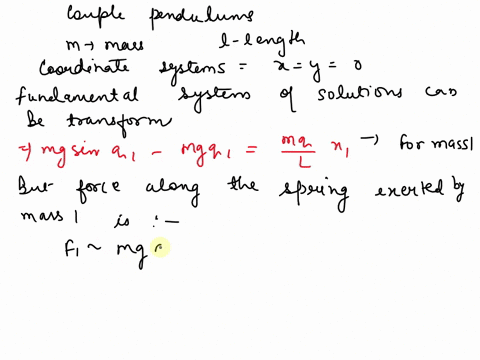 Couple pendulums
m → mass l - length
Coordinate systems = x = y = 0
fundamental system of solutions can
be transform
⇒ mg sin a1 - mg q1 = mq/L x1 → for mass 1
But force along the spring exerted by
mass 1 is :-
F1 ~ mg